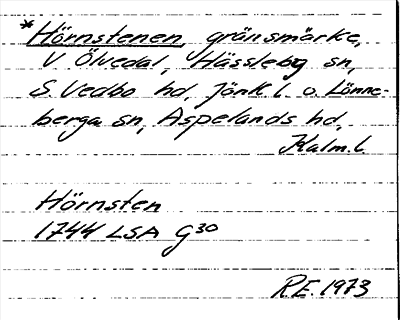 *Hörnstenen, gränsmärke,
V. Ölvedal, Hässleby sn,
S. Vedbo hd, Jönk l. o. Lönne-
berga sn, Aspelands hd,
Kalm. l.
Hörnsten
1744 LSA G30
R.E. 1973